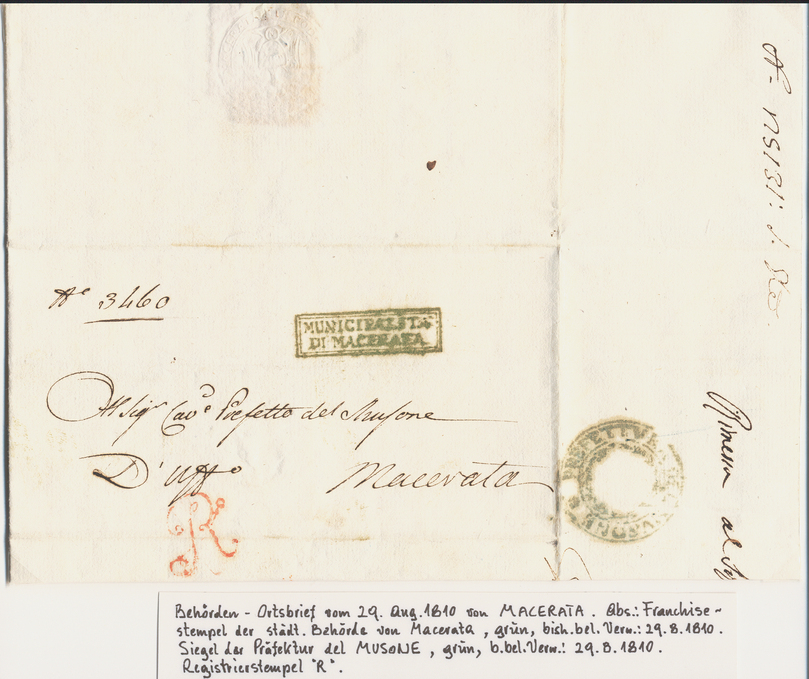 N° 3460
MUNICIPALITA
DI MACERATA
Al Sig.r Cav.e Prefetto del Musone
D'Uff.o Macerata
R
PREFETTURA
MUSONE
Rimessa al
Behörden - Ortsbrief vom 29. Aug. 1810 von MACERATA. Abs.: Franchise~
stempel der städt. Behörde von Macerata, grün, bish. bel. Verw.: 29.8.1810.
Siegel der Präfektur del MUSONE, grün, b. bel. Verw.: 29.8.1810.
Registrierstempel "R".